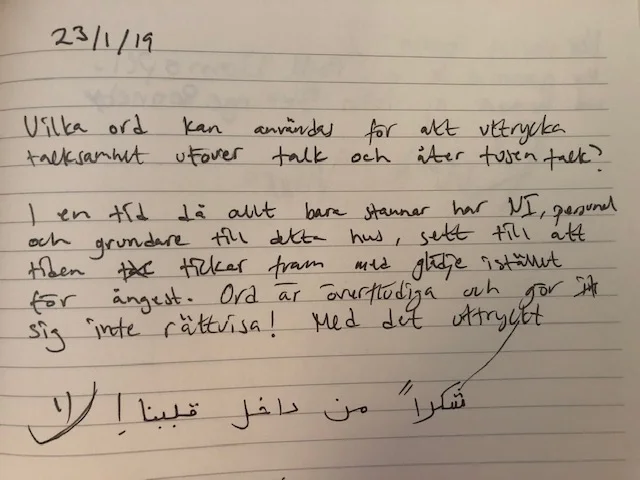 23/1/19
Vilka ord kan användas för att uttrycka
tacksamhet utöver tack och åter tusen tack?
I en tid då allt bara stannar har NI, personal
och grundare till detta hus, sett till att
tiden tickar fram med glädje istället
för ångest. Ord är överflödiga och gör
sig inte rättvisa! Med det uttryckt
شكراً من داخل قلبنا!